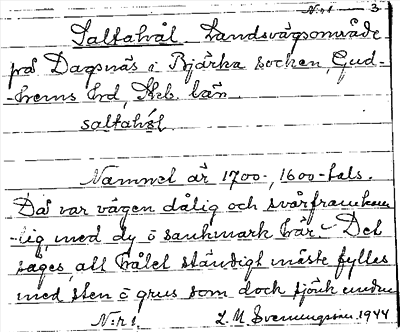 Nr 1 3
Saltahål. Landsvägsområde
på Dagsnäs i Bjärka socken, Gud-
-hems hrd, Skb. län.
saltahål.
Namnet är 1700-, 1600-tals.
Då var vägen dålig och svårframkom
-lig, med dy o sankmark här – Det
säges att hålet ständigt måste fyllas
med sten o grus som dock sjönk undan
Nr 1. L. M. Svenungsson 1944